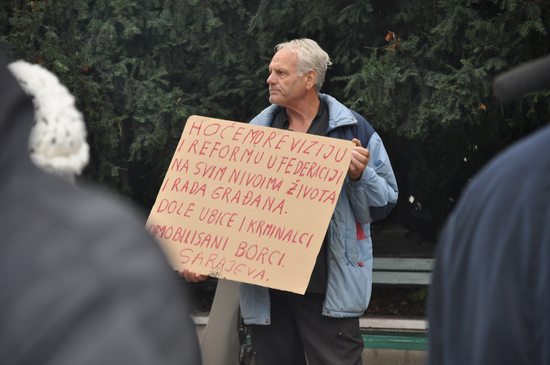 HOĆEMO REVIZIJU
I REFORMU U FEDERACIJI
NA SVIM NIVOIMA ŽIVOTA
I RADA GRAĐANA.
DOLE UBICE I KRMINALCI
DEMOBILISANI BORCI.
SARAJEVA.